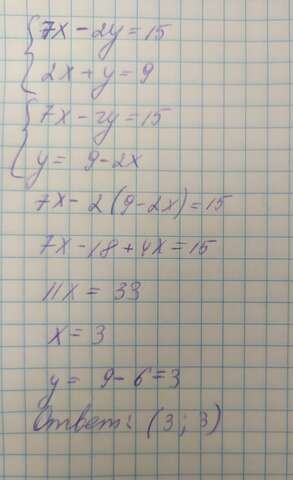 7x - 2y = 15
2x + y = 9
7x - 2y = 15
y = 9 - 2x
7x - 2(9 - 2x) = 15
7x - 18 + 4x = 15
11x = 33
x = 3
y = 9 - 6 = 3
Ответ: (3; 3)